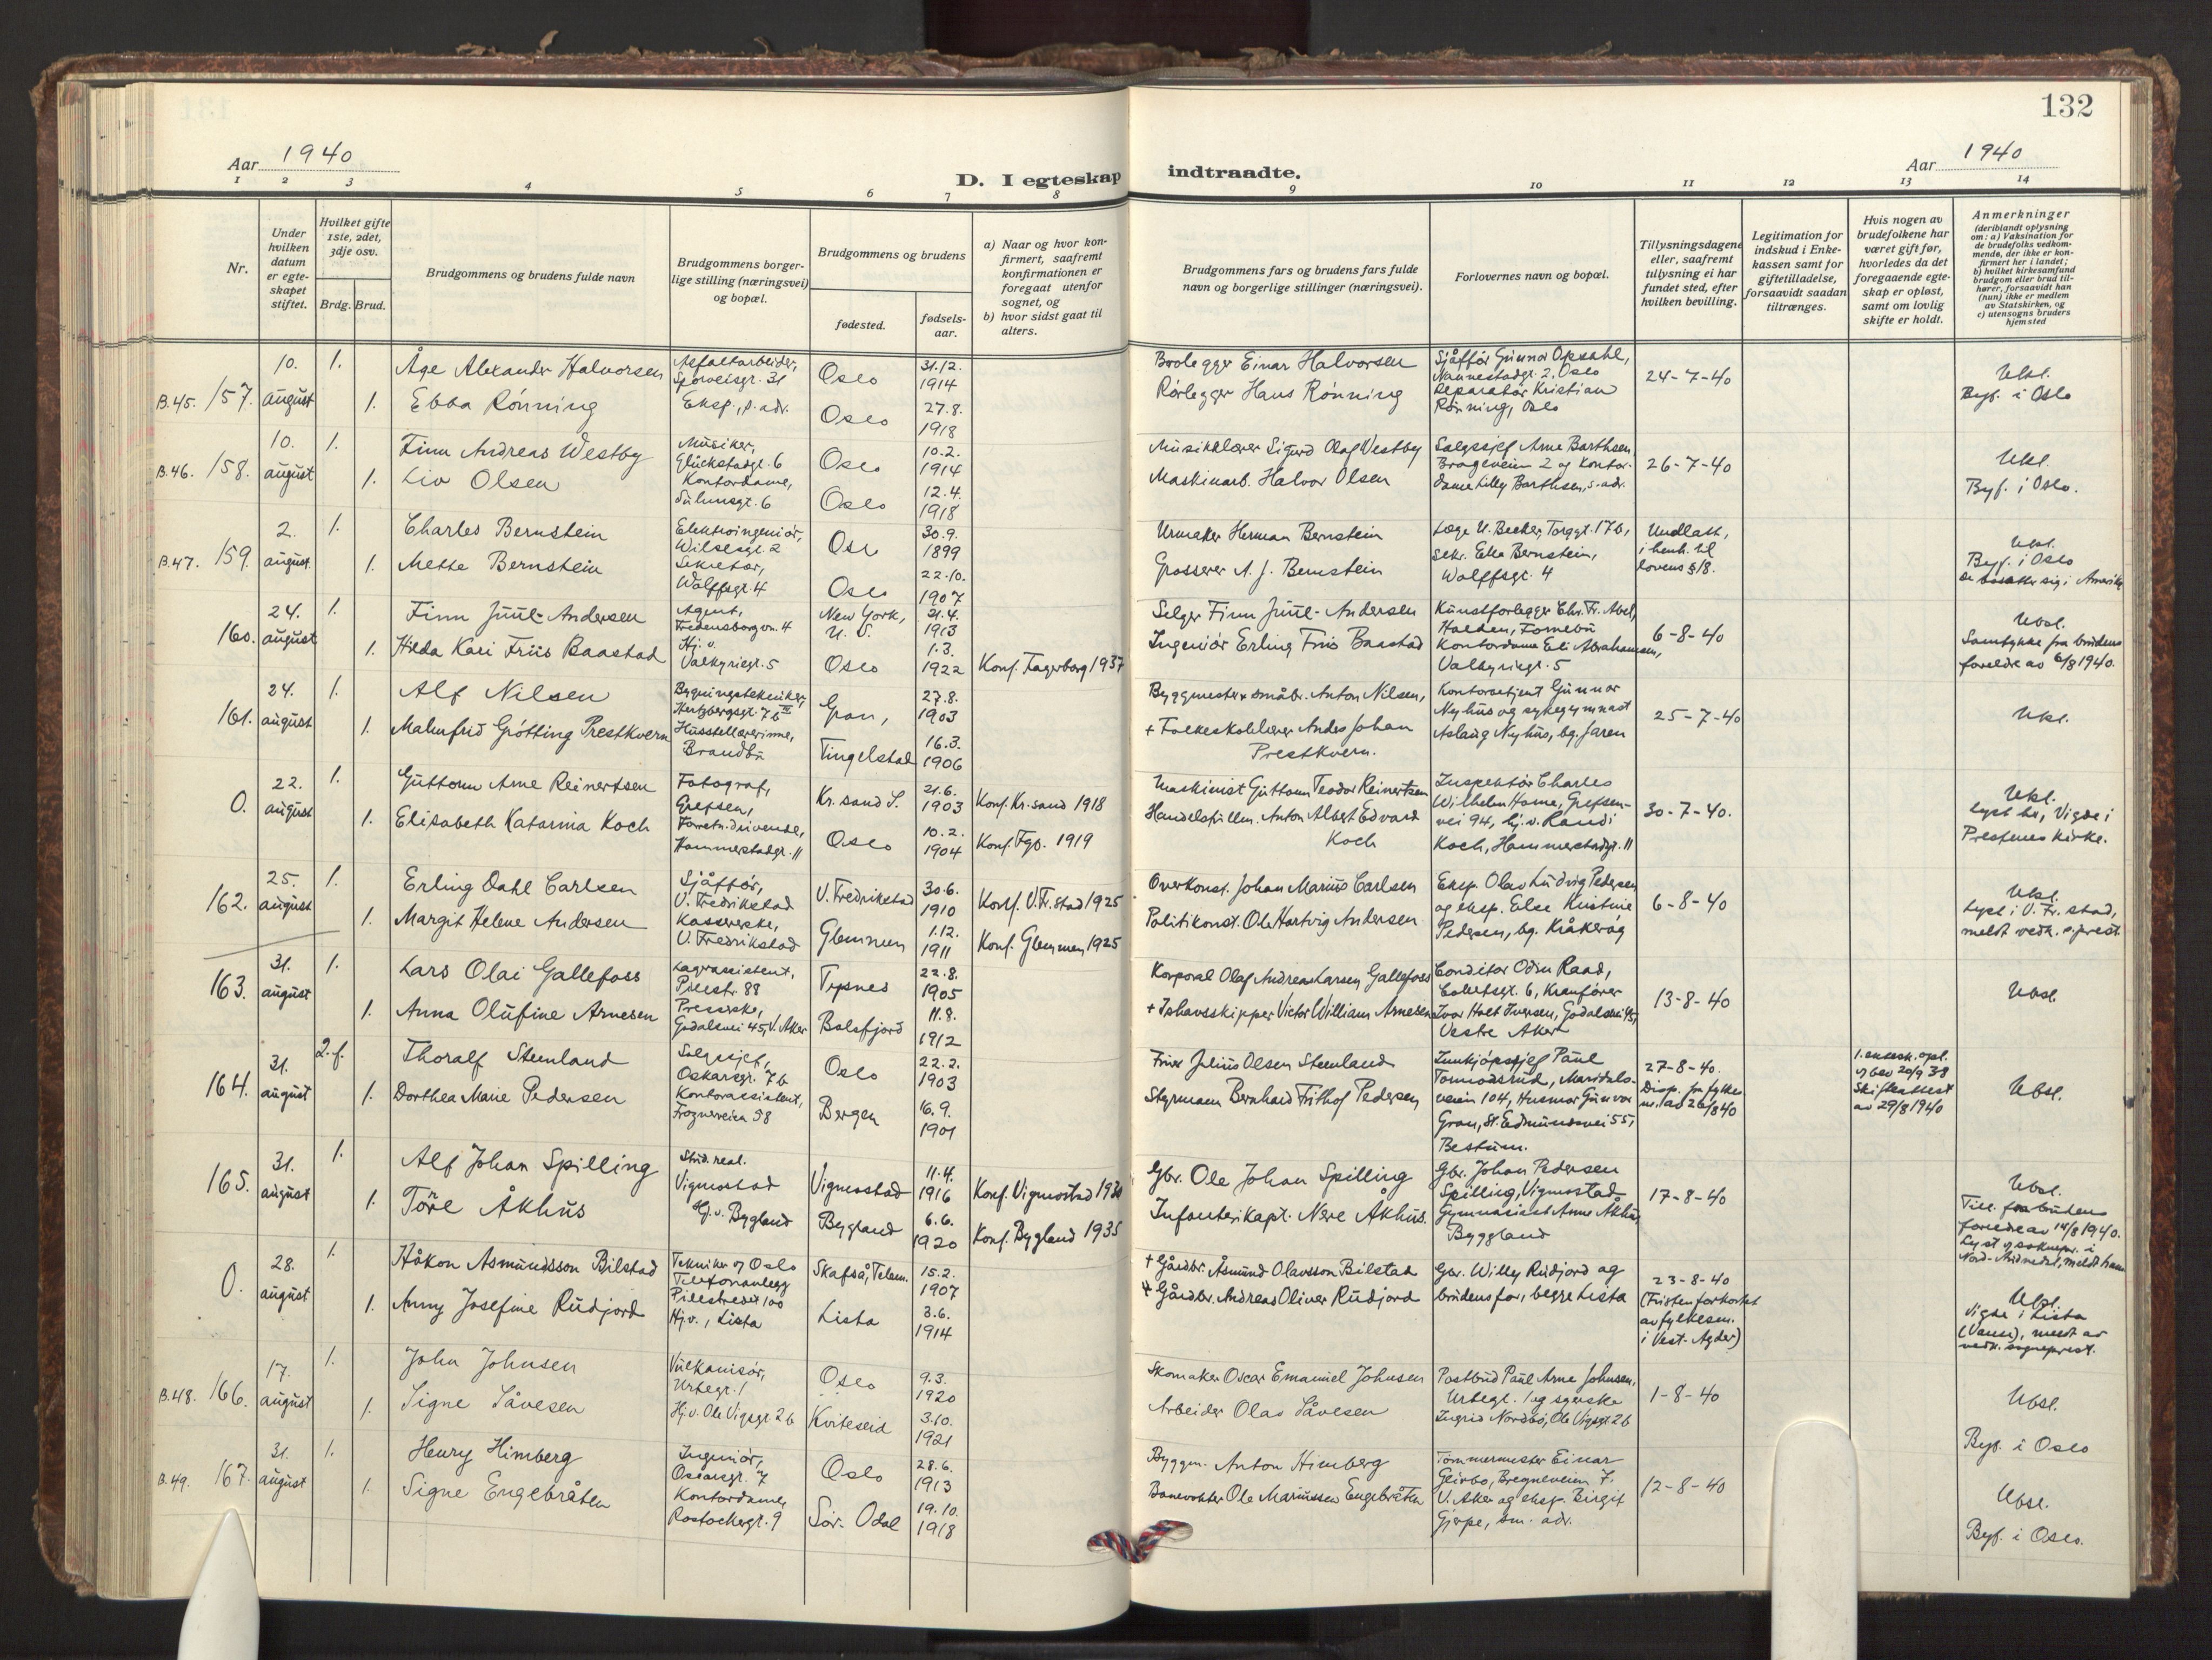 132
Aar 1940
D. I egteskap indtraadte.
Aar 1940
1 2 3 4 5 6 7 8 9 10 11 12 13 14
Nr.
Under hvilken datum er egteskapet stiftet.
Hvilket gifte 1ste, 2det, 3dje osv.
Brdg. Brud.
Brudgommens og brudens fulde navn
Brudgommens borgerlige stilling (næringsvei) og bopæl.
Brudgommens og brudens
fødested.
fødselsaar.
a) Naar og hvor konfirmert, saafremt konfirmationen er foregaat utenfor sognet, og
b) hvor sidst gaat til alters.
Brudgommens fars og brudens fars fulde navn og borgerlige stillinger (næringsvei).
Forlovernes navn og bopæl.
Tillysningsdagene eller, saafremt tillysning ei har fundet sted, efter hvilken bevilling.
Legitimation for indskud i Enkekassen samt for giftetilladelse, forsaavidt saadan tiltrænges.
Hvis nogen av brudefolkene har været gift før, hvorledes da det foregaaende egteskap er opløst, samt om lovlig skifte er holdt.
Anmerkninger
(deriblandt oplysning om: a) Vaksination for de brudefolks vedkommende, der ikke er konfirmert her i landet; b) hvilket kirkesamfund brudgom eller brud tilhører, forsaavidt han (hun) ikke er medlem av Statskirken, og c) utensogns bruders hjemsted
B.45. 157. 10. august 1. Åge Alexander Halvorsen Asfaltarbeider, Sporveisgt. 31 Oslo 31.12. 1914
1. Ebba Rönning Eksp., s. adr. Oslo 27.8. 1918
Einar Halvorsen
Rörlegger Hans Rönning
Sjåfför Gunnar Opsahl, Nannestadgt. 2, Oslo
Reparatör Kristian Rönning, Oslo
24-7-40
Ukl.
Byf. i Oslo
B.46. 158. 10. august 1. Finn Andreas Westby Musiker, Glückstadgt. 6 Oslo 10.2. 1914
1. Liv Olsen Kontordame, Oslo 12.4. 1918
Musikklærer Sigurd Olaf Westby
Maskinarb. Halvor Olsen
Salgssjef Arne Barthsen Brageveien 2 og Kontordame Lilly Barthsen, s. adr.
26-7-40
Ukl.
Byf. i Oslo.
B.47. 159. 2. august 1. Charles Bernstein Elektroingeniör, Wilsesgt. 2 Oslo 30.9. 1899
1. Mette Bernstein Sekretær, Wolffsgt. 4 Oslo 22.10. 1907
Urmaker Herman Bernstein
Grosserer A. J. Bernstein
Læge U. Becker, Torggt. 17b,
sekr. Ella Bernstein, Wolffsgt. 4
Undlatt, i henh. til lovens § 18.
Ukl.
Byf. i Oslo
de bosætter sig i Amerika
160. 24. august 1. Finn Juul-Andersen Agent, Fredensborgvn. 4 New York, U. S. 21.4. 1913
1. Hilda Kari Friis Baastad Hj. v. Valkyriegt. 5 Oslo 1.3. 1922 Konf. Fagerborg 1937
Selger Finn Juul-Andersen
Ingeniör Erling Friis Baastad
Kunstforlegger Chr. Fr. Abel, Halden, Fornebu
Kontordame Eli Abrahamsen, Valkyriegt. 5
6-8-40
Ubsl.
Samtykke fra brudens foreldre av 6/8 1940.
161. 24. august 1. Alf Nilsen Bygningstekniker, Hertzbergsgt. 7b III Gran, 27.8. 1903
1. Malmfrid Grötting Prestkvern Husstellærerinne, Brandbu Tingelstad 16.3. 1906
Byggmester & småbr. Anton Nilsen,
+ Folkeskolelærer Andes Johan Prestkvern.
Kontorbetjent Gunnar Nyhus og sykegymnast Aslaug Nyhus, bg. Jaren
25-7-40
Ukl.
0. 22. august 1. Guttorm Arne Reinertsen Fotograf, Grefsen, Kr.sand S. 21.6. 1903 Konf. Kr.sand 1918
1. Elisabeth Katarina Koch Forretn.drivende, Hammerstadgt. 11 Oslo 10.2. 1904 Konf. Fgb. 1919
Maskinist Guttorm Teodor Reinertsen
Anton Albert Edvard Koch
Inspektör Charles Wilhelm Home, Grefsenvei 94, hj. v. Randi Koch, Hammerstadgt. 11
30-7-40.
Ukl.
Lyst her, Vigde i Prestenes kirke.
162. 25. august 1. Erling Dahl Carlsen Sjåfför, V. Fredrikstad V. Fredrikstad 30.6. 1910 Konf. V. Fr.stad 1925
1. Margit Helene Andersen Kassererske, V. Fredrikstad Glemmen 1.12. 1911 Konf. Glemmen 1925
Overkonst. Johan Marius Carlsen
Politikonst. Ole Hartvig Andersen
Eksp. Olav Ludvig Pedersen og eksp. Else Kristine Pedersen, bg. Kråkeröy
6-8-40
Ukl.
Lyst i V. Fr.stad, meldt vedk. s.prest.
163. 31. august 1. Lars Olai Gallefoss Lagerassistent, Pilestr. 88 Typsnes 22.8. 1905
1. Anna Olufine Arnesen Presserske, Godalsvei 45, V. Aker Balsfjord 11.8. 1912
Korporal Olaf Andreas Larsen Gallefoss
+ Ishavsskipper Victor William Arnesen
Conditor Odin Raad, Colletsgt. 6, Kranförer Ivar Holt Iversen, Godalsvei 45, Vestre Aker
13-8-40
Ubsl.
164. 31. august 2. f. Thoralf Steenland Salgssjef, Oskarsgt. 7b Oslo 22.2. 1903
1. Dorthea Marie Pedersen Kontorassistent, Frognerveien 58 Bergen 16.9. 1901
Julius Olsen Steenland
Styrmann Bernhard Frithof Pedersen
Innkjöpssjef Paul Tomodsrud, Maridalsveien 104, Husmor Gunvor Gran, St. Edmundsvei 55, Bestum.
27-8-40.
Disp. fra fylkesm. av 26/8 40
1. ektesk. opl. v/ bev 20/9 38
Skifteattest av 29/8 1940
Ubsl.
165. 31. august 1. Alf Johan Spilling Stud. real. Vigmostad Vigmostad 11.4. 1916 Konf. Vigmostad 1930
1. Töre Åkhus Hj. v. Bygland Bygland 6.6. 1920 Konf. Bygland 1935
Gbr. Ole Johan Spilling
Infanterikapt. Åkhus.
Gbr. Johan Pedersen Spilling, Vigmostad
Gymnasiast Anne Åkhus Byggland
17-8-40
Ubsl.
Till. fra brudens foreldre av 14/8 1940.
Lyst v/ sokneprest i Nord-Audnedal, meldt ham
0. 28. august 1. Håkon Asmundsson Bilstad Tekniker v/ Oslo Telefonanlegg Pilestredet 100 Skafså, Telem. 15.2. 1907
1. Anny Josefine Rudjord Hj.v., Lista Lista 3.6. 1914
+ Gårdbr. Åsmund Olavsson Bilstad
+ Gårdbr. Andreas Oliver Rudjord
Gbr. Willy Rudjord og brudens far, begge Lista
23-8-40
(Fristen forkortet av fylkesm. i Vest-Agder)
Ubsl.
Vigde i Lista (Vanse), meldt av vedk. sogneprest.
B.48. 166. 17. august 1. John Johnsen Vulkanisör, Urtegt. 1 Oslo 9.3. 1920
1. Signe Såvesen Hj.v. Ole Vigsgt. 2b Kviteseid 3.10. 1921
Skomaker Oscar Emanuel Johnsen
Arbeider Olav Såvesen
Postbud Paul Arne Johnsen, Urtegt. 1 og syerske Ingrid Nordbö, Ole Vigsgt 2b
1-8-40
Ubsl.
Byf. i Oslo
B.49. 167. 31. august 1. Henry Himberg Ingeniör, Oscarsgt. 7 Oslo 28.6. 1913
1. Signe Engebråten Kontordame, Rostockergt. 9 Sör-Odal 19.10. 1918
Byggm. Anton Himberg
Banevokter Ole Mariussen Engebråten
Tömmermester Einar Geirbo, Bregneveien 7. V. Aker og eksp. Birgit Gjerpe, sm. adr.
12-8-40
Ubsl.
Byf. i Oslo.